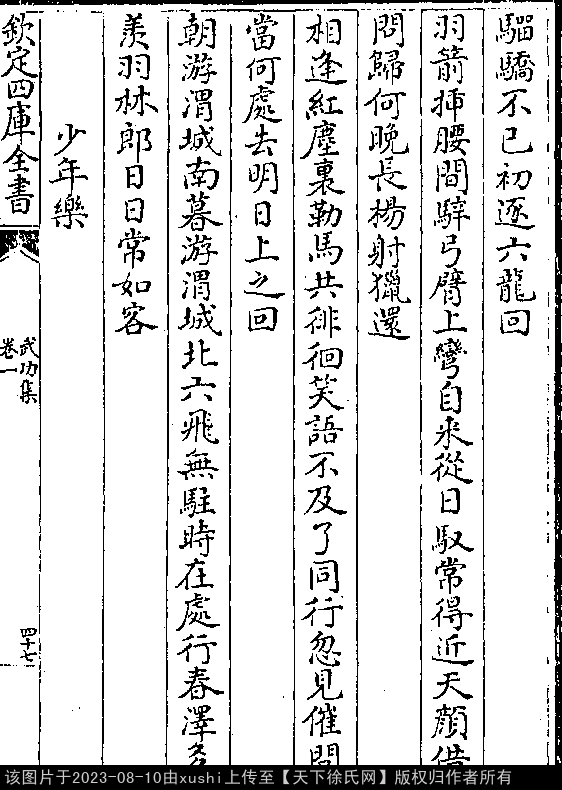 騮驕不已初逐六龍回
羽箭揷腰間騂弓臂上彎自来從日馭常得近天顔借
問歸何晚長楊射獵還
相逢紅塵裏勒馬共徘徊笑語不及了同行忽見催問
當何處去明日上之回
朝游渭城南暮游渭城北六飛無駐時在處行春澤多
羡羽林郎日日常如客
少年樂
欽定四庫全書
武功集
卷一
四十七
该图片于2023-08-10由xushi上传至【天下徐氏网】版权归作者所有